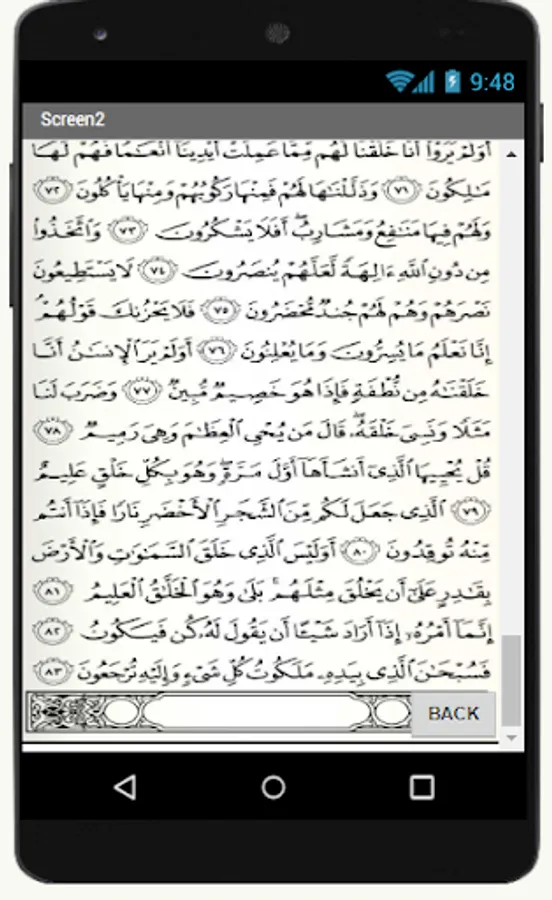 9:48
Screen2
أَوَلَمْ يَرَوْا أَنَّا خَلَقْنَا لَهُم مِّمَّا عَمِلَتْ أَيْدِينَا أَنْعَـٰمًا فَهُمْ لَهَا
مَـٰلِكُونَ ﴿٧١﴾ وَذَلَّلْنَـٰهَا لَهُمْ فَمِنْهَا رَكُوبُهُمْ وَمِنْهَا يَأْكُلُونَ ﴿٧٢﴾
وَلَهُمْ فِيهَا مَنَـٰفِعُ وَمَشَارِبُ ۖ أَفَلَا يَشْكُرُونَ ﴿٧٣﴾ وَٱتَّخَذُوا
مِن دُونِ ٱللَّهِ ءَالِهَةً لَّعَلَّهُمْ يُنصَرُونَ ﴿٧٤﴾ لَا يَسْتَطِيعُونَ
نَصْرَهُمْ وَهُمْ لَهُمْ جُندٌ مُّحْضَرُونَ ﴿٧٥﴾ فَلَا يَحْزُنكَ قَوْلُهُمْ ۘ
إِنَّا نَعْلَمُ مَا يُسِرُّونَ وَمَا يُعْلِنُونَ ﴿٧٦﴾ أَوَلَمْ يَرَ ٱلْإِنسَـٰنُ أَنَّا
خَلَقْنَـٰهُ مِن نُّطْفَةٍ فَإِذَا هُوَ خَصِيمٌ مُّبِينٌ ﴿٧٧﴾ وَضَرَبَ لَنَا
مَثَلًا وَنَسِىَ خَلْقَهُۥ ۖ قَالَ مَن يُحْىِ ٱلْعِظَـٰمَ وَهِىَ رَمِيمٌ ﴿٧٨﴾
قُلْ يُحْيِيهَا ٱلَّذِىٓ أَنشَأَهَآ أَوَّلَ مَرَّةٍ ۖ وَهُوَ بِكُلِّ خَلْقٍ عَلِيمٌ
﴿٧٩﴾ ٱلَّذِى جَعَلَ لَكُم مِّنَ ٱلشَّجَرِ ٱلْأَخْضَرِ نَارًا فَإِذَآ أَنتُم
مِّنْهُ تُوقِدُونَ ﴿٨٠﴾ أَوَلَيْسَ ٱلَّذِى خَلَقَ ٱلسَّمَـٰوَٰتِ وَٱلْأَرْضَ
بِقَـٰدِرٍ عَلَىٰٓ أَن يَخْلُقَ مِثْلَهُم ۚ بَلَىٰ وَهُوَ ٱلْخَلَّـٰقُ ٱلْعَلِيمُ ﴿٨١﴾
إِنَّمَآ أَمْرُهُۥٓ إِذَآ أَرَادَ شَيْـًٔا أَن يَقُولَ لَهُۥ كُن فَيَكُونُ ﴿٨٢﴾
فَسُبْحَـٰنَ ٱلَّذِى بِيَدِهِۦ مَلَكُوتُ كُلِّ شَىْءٍ وَإِلَيْهِ تُرْجَعُونَ ﴿٨٣﴾
BACK